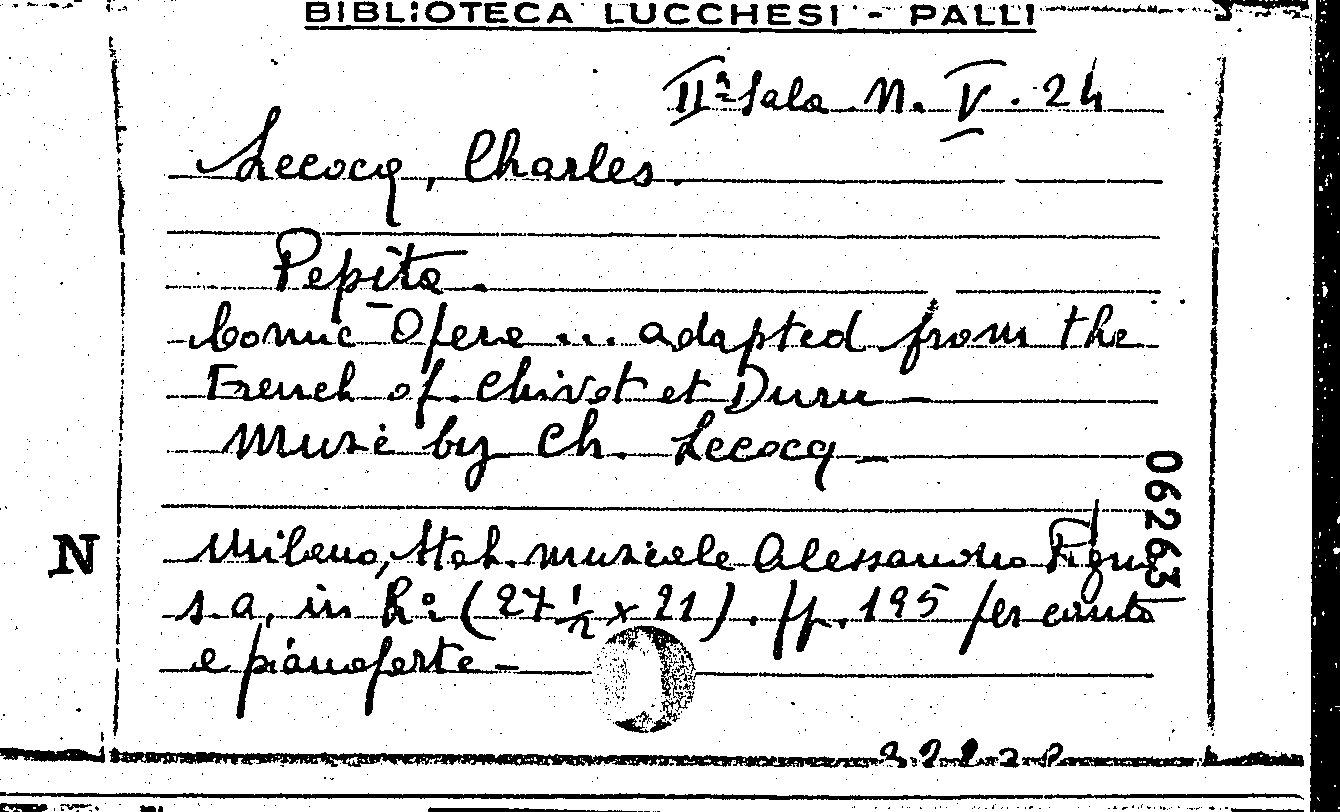 BIBLIOTECA LUCCHESI - PALLI
IIª Sala N. V. 24
Lecocq, Charles.
Pepita.
Comic Opera ... adapted from the
French of Chivot et Duru -
Music by Ch. Lecocq -
06263
N
Milano, Stab. musicale Alessandro
s. a. in 4º (27 1/2 x 21). pp. 195 per canto
e pianoforte -